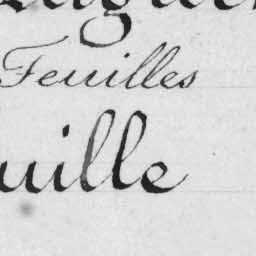 Feuilles
uille